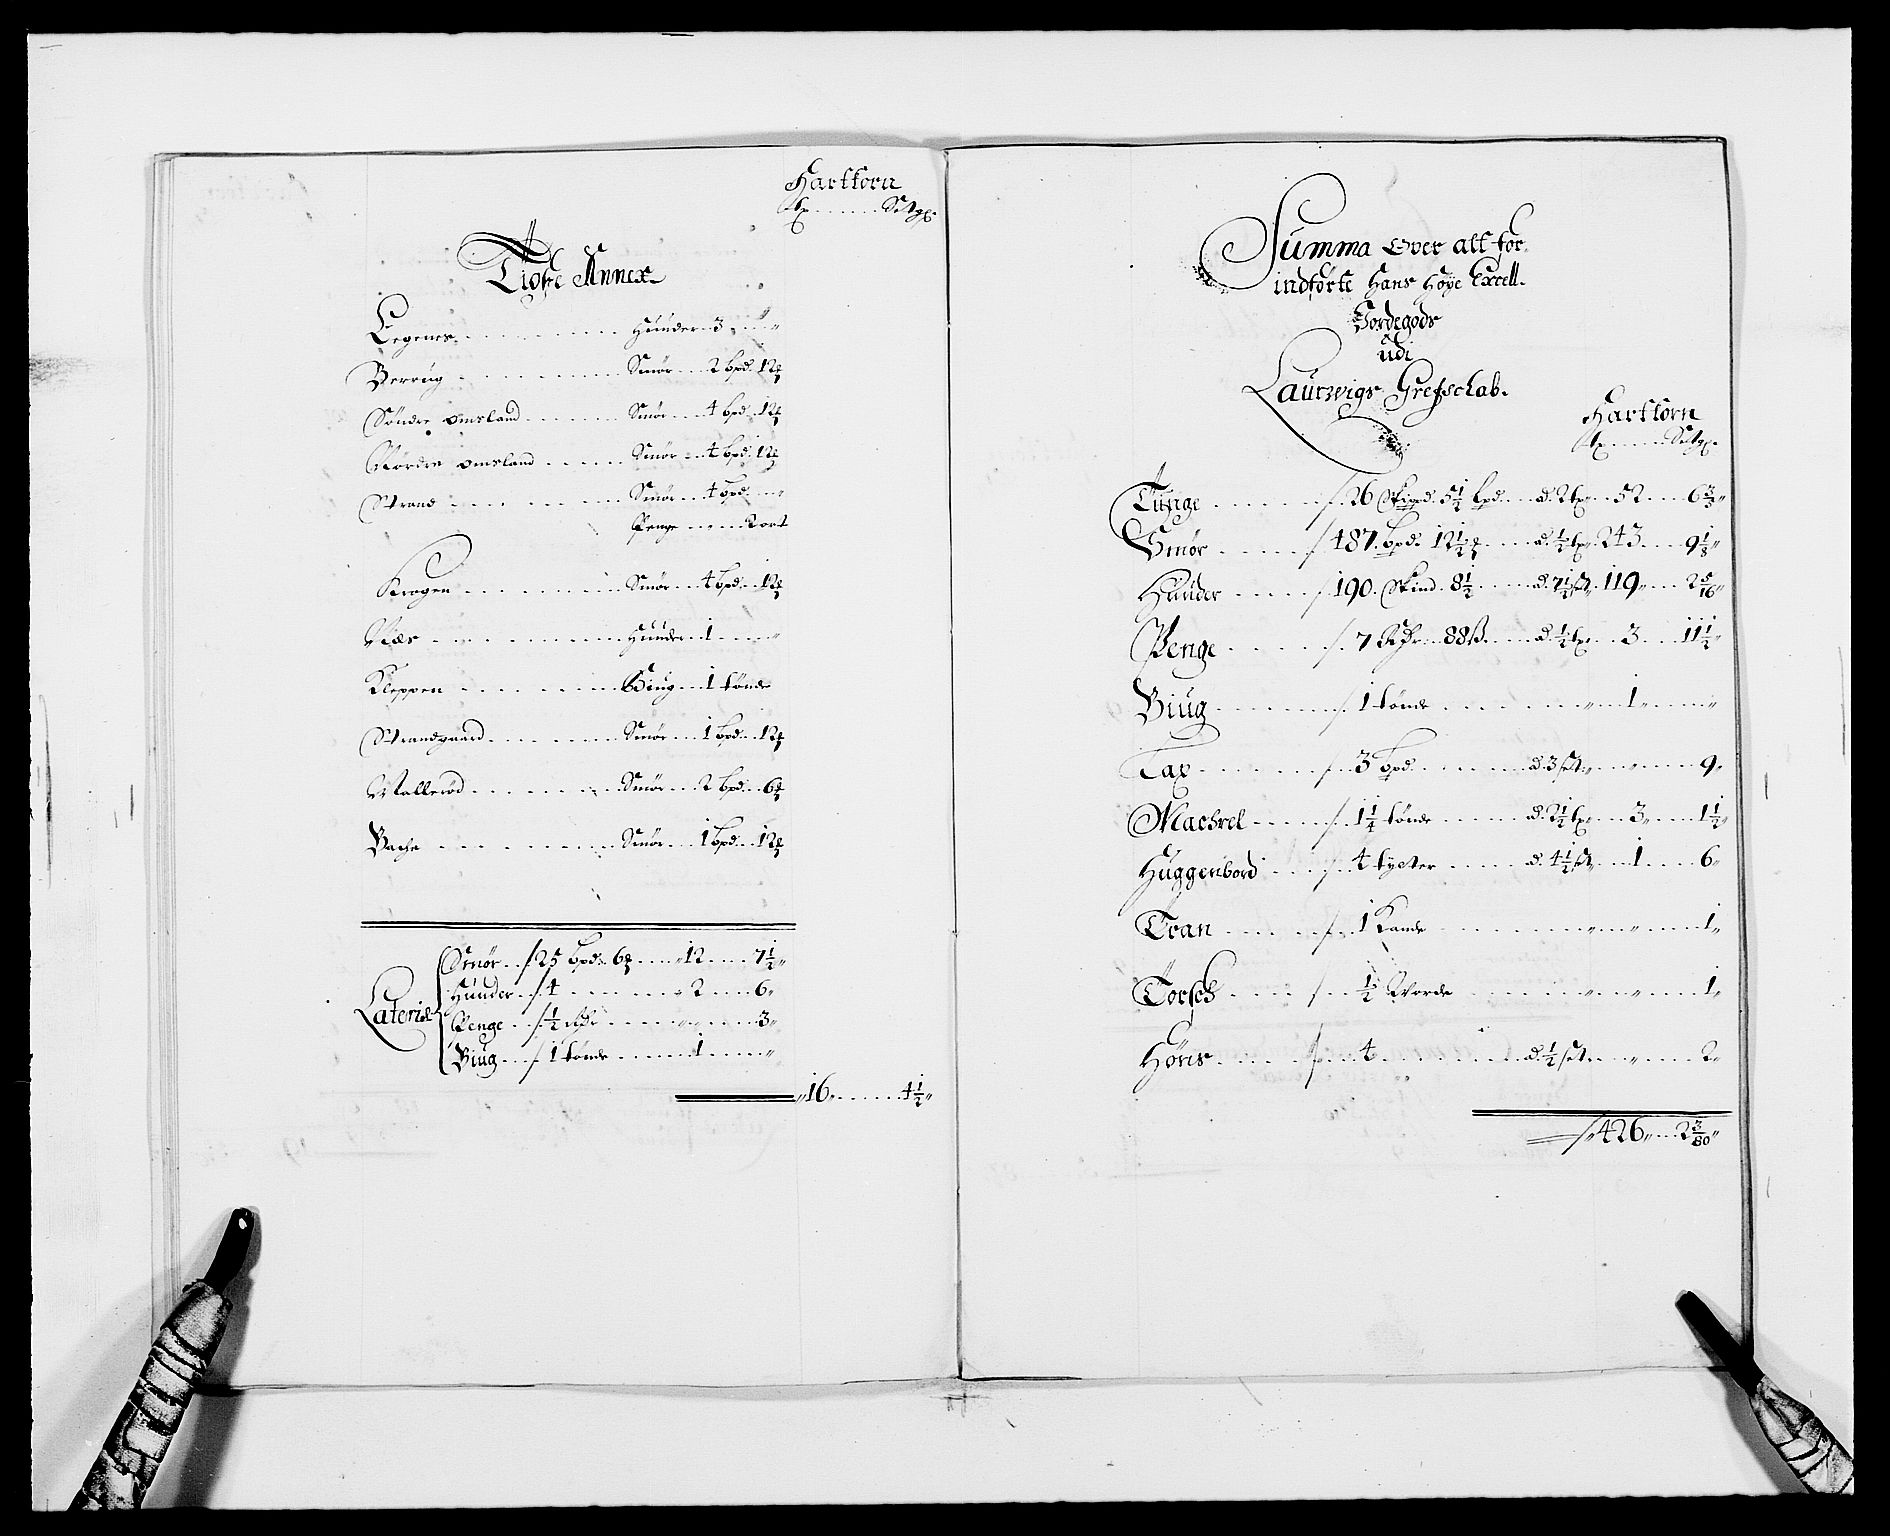 Harttorn
tx ...... Settgr.
Tiøse Annex
Legener ...... Huuder 3 „
Berrug ...... Smør 2 bpd. 12 ℔
Søndre omsland ...... Smør 4 bpd. 12 ℔
Nørdre omsland ...... Smør 4 bpd. 12 ℔
Strand ...... Smør 4 bpd. „
Penge 2 ort
Krogen ...... Smør 4 bpd. 12 ℔
Næs ...... Huuder 1 „
Kleppen ...... Biug 1 tønde
Strandgaard ...... Smør 1 bpd. 12 ℔
Wallerød ...... Smør 2 bpd. 6 ℔
Backe ...... Smør 1 bpd. 12 ℔
Lateris
Smør 25 bpd. 6 ℔ „ 12 7½ „
Huuder 4 „ 2 6 „
Penge ½ Rdr „ 3 „
Biug 1 tønde 1 „
„ 16 „ 4½ „
Summa Over alt for-
indførte Hans Høye Excell.
Jordegods
udi
Laurwigs Grefschab.
Harttorn
tx ...... Settgr.
Tunge ...... 26 Skippd. 5½ bpd. a. 2 tx 52 6⅗ „
Smør ...... 487 bpd. 12½ ℔ a. ½ tx 243 9⅛ „
Huuder ...... 190 Skind 8½ a. 7½ set. 119 „ 2 5/16 „
Penge ...... 7 Rdr 88 ß a. ½ tx 3 11½ „
Biug ...... 1 tønde „ 1 „
Lax ...... 3 bpd. a. 3 set. „ 9 „
Machrel ...... 1¼ tønde a. 2½ tx 3 „ 1½ „
Huggenbord ...... 4 tylter a. 4½ set. 1 6 „
Tran ...... 1 Kande „ „ 1 „
Torsch ...... ½ Worde „ „ 1 „
Høns ...... 4 a. ½ set. „ 2 „
„ 426 „ 2 3/80 „